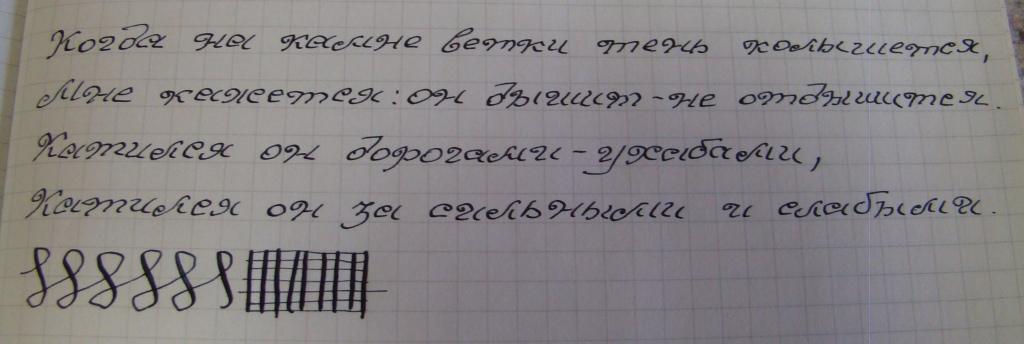 Когда на камне ветки тень колышется,
Мне кажется: он дышит - не отдышится.
Катился он дорогами - ухабами,
Катился он за сильными и слабыми.